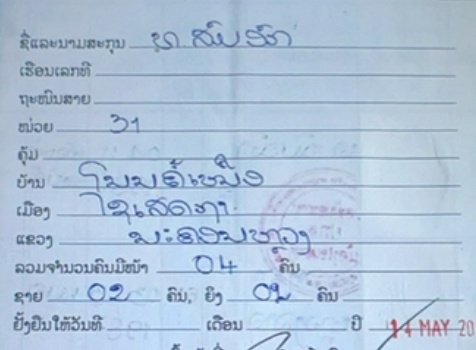 ຊື່ແລະນາມສະກຸນ ທ. ສົມຈິດ
ເຮືອນເລກທີ
ຖະໜົນສາຍ
ໜ່ວຍ 31
ຄຸ້ມ
ບ້ານ ໂນນຄໍ້ເໜືອ
ເມືອງ ໄຊເສດຖາ
ແຂວງ ນະຄອນຫຼວງ
ລວມຈຳນວນຄົນມີໜ້າ 04 ຄົນ
ຊາຍ 02 ຄົນ, ຍິງ 02 ຄົນ
ຢັ້ງຢືນໃຫ້ວັນທີ ເດືອນ ປີ 14 MAY 20